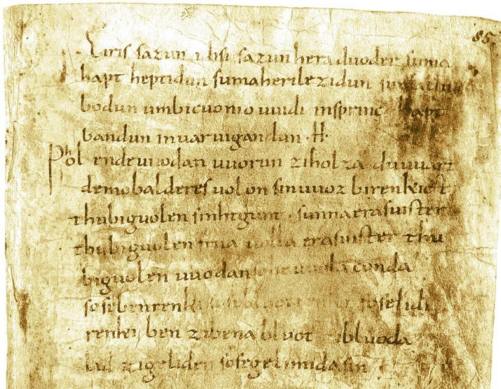 85
Eiris sazun idisi sazun hera duoder suma
hapt heptidun suma heri lezidun
bodun umbicuonio uuidi insprinc hapt
bandun inuar uigandun .H.
Phol ende uuodan uuorun ziholza du uuart
demobalderes uolon sinuuoz birenkict
thubiguolen sinhtgunt . sunna erasuister
thubiguolen friia uolla erasuister thu
biguolen uuodan so uuola conda
sose benrenki sose lidi
renki ben zi bena bluot zi bluoda
lid zi geliden sose gelimida sin